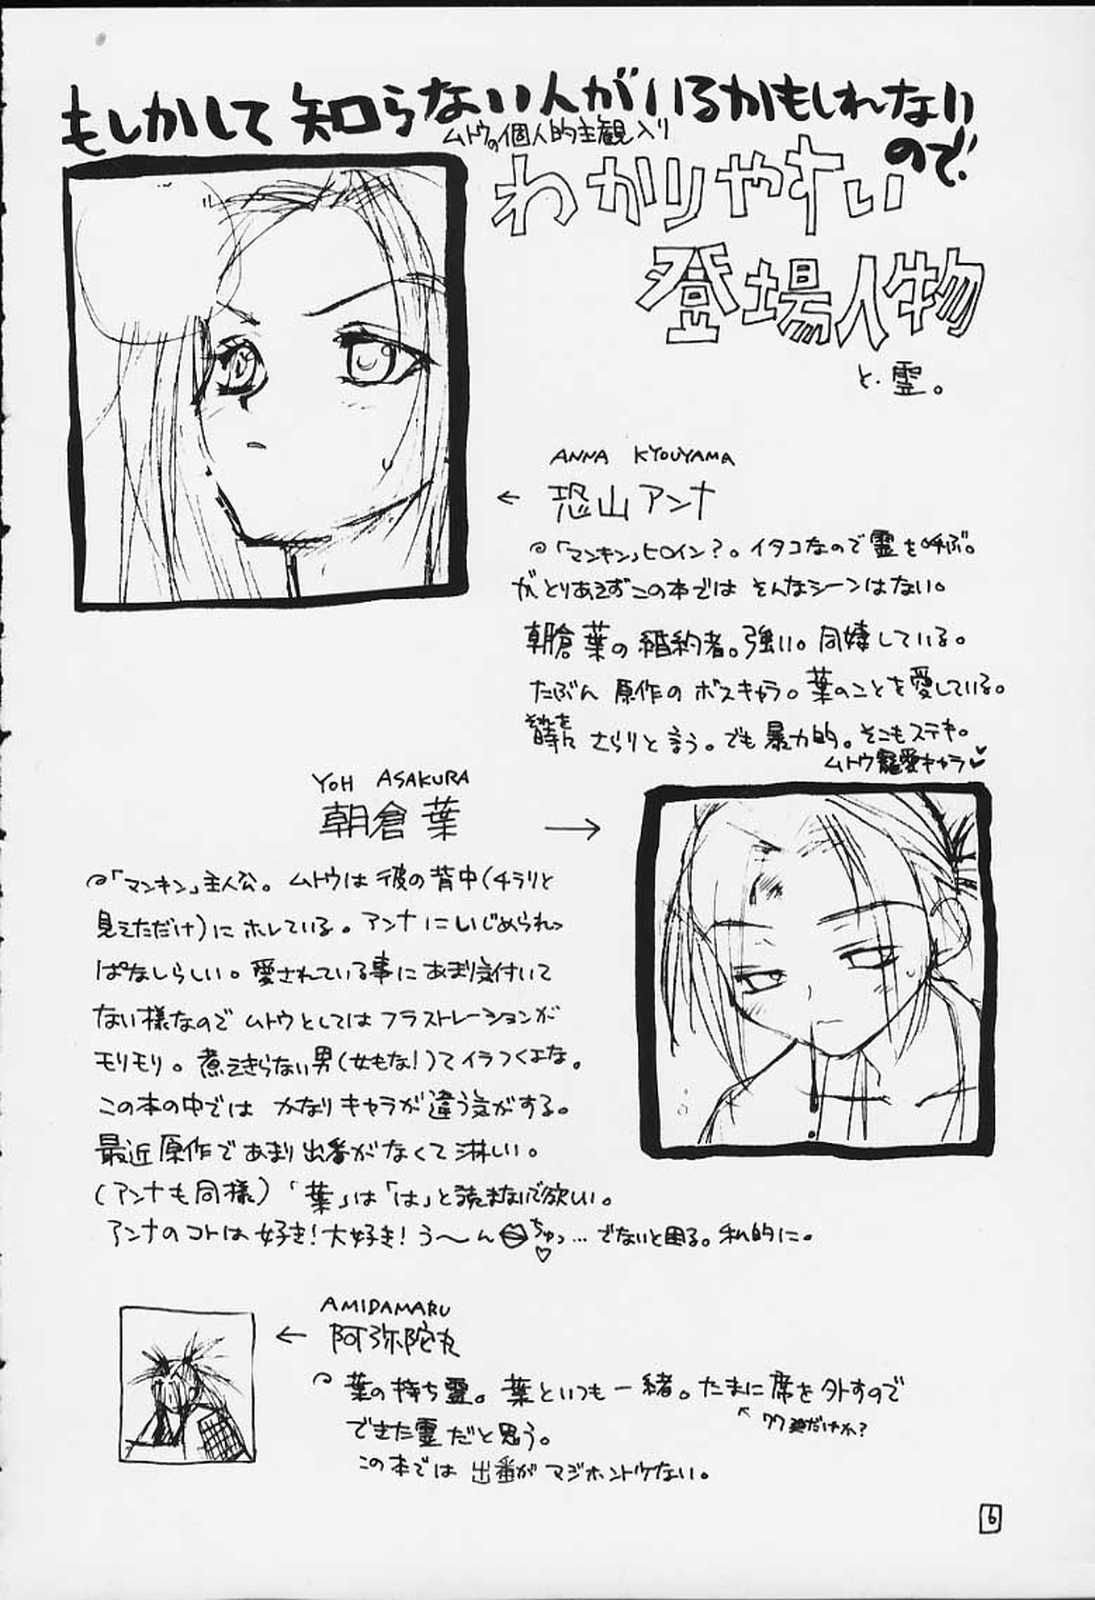 もしかして知らない人がいるかもしれない
ので.
ムトウの個人的主観入り
わかりやすい
登場人物
と.霊。
ANNA KYOUYAMA
← 恐山アンナ
「マンキン」ヒロイン?。イタコなので霊を呼ぶ。
がとりあえずこの本ではそんなシーンはない。
朝倉葉の婚約者。強い。同棲している。
たぶん原作のボスキャラ。葉のことを愛している。
それを時にさらりと言う。でも暴力的。そこもステキ。
ムトウ寵愛キャラ♥
YOH ASAKURA
朝倉葉 →
「マンキン」主人公。ムトウは彼の背中(チラリと
見えただけ)にホレている。アンナにいじめられっ
ぱなしらしい。愛されている事にあまり気付いて
ない様なのでムトウとしてはフラストレーションが
モリモリ。煮えきらない男(女もな!)てイラつくよな。
この本の中ではかなりキャラが違う気がする。
最近原作であまり出番がなくて淋しい。
(アンナも同様)「葉」は「は」と読まないで欲しい。
アンナのコトは好き!大好き!う〜んちゅっ♡…でないと困る。私的に。
AMIDAMARU
← 阿弥陀丸
葉の持ち霊。葉といつも一緒。たまに席を外すので
できた霊だと思う。
この本では出番がマジホントウない。
6